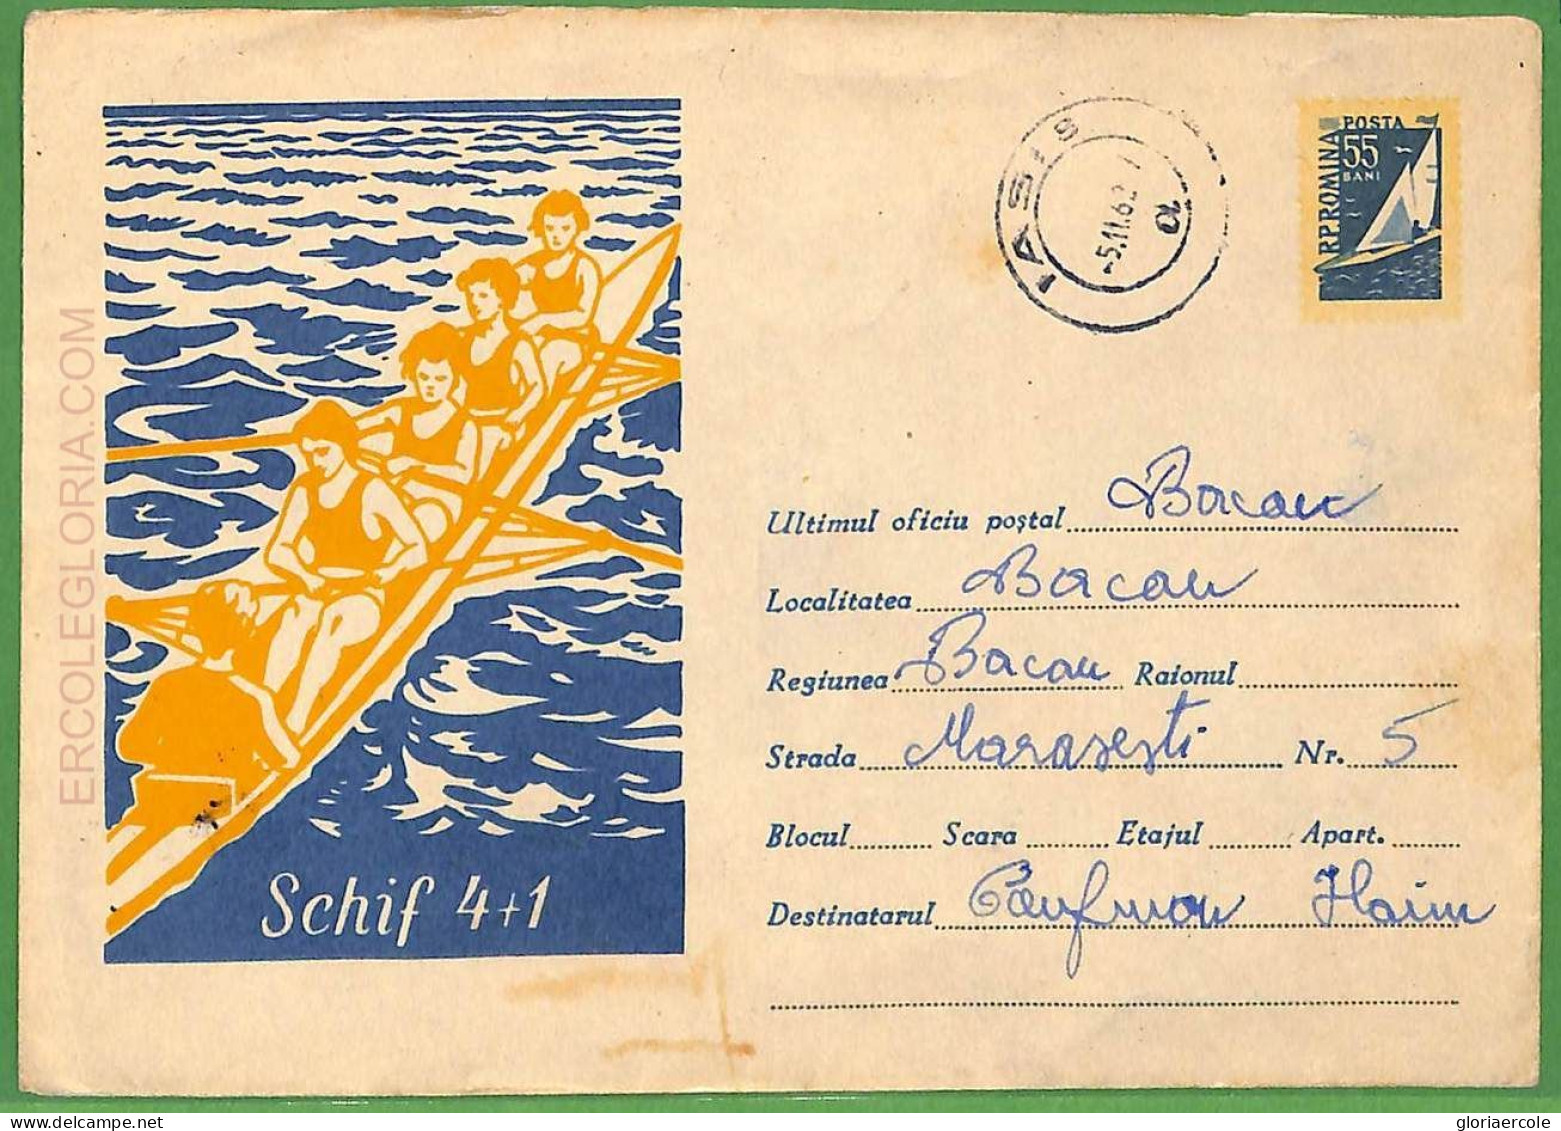 ERCOLEGLORIA.COM
IASI 5
-5.11.62
POSTA
R.P.ROMINA
55
BANI
Schif 4+1
Ultimul oficiu poștal Bacau
Localitatea Bacau
Regiunea Bacau Raionul
Strada Marasesti Nr. 5
Blocul Scara Etajul Apart.
Destinatarul Caufman Haim
gloriaercole